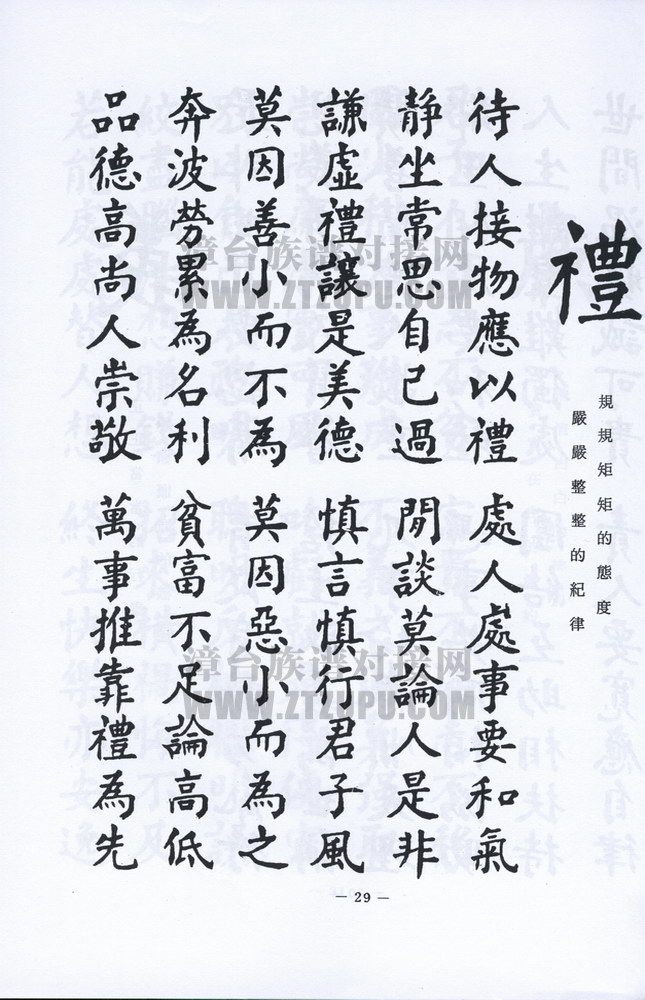 禮
規規矩矩的態度
嚴嚴整整的紀律
待人接物應以禮 處人處事要和氣
靜坐常思自己過 閒談莫論人是非
謙虛禮讓是美德 慎言慎行君子風
莫因善小而不為 莫因惡小而為之
奔波勞累為名利 貧富不足論高低
品德高尚人崇敬 萬事推靠禮為先
漳台族谱对接网
WWW.ZTZUPU.COM
漳台族谱对接网
WWW.ZTZUPU.COM
— 29 —